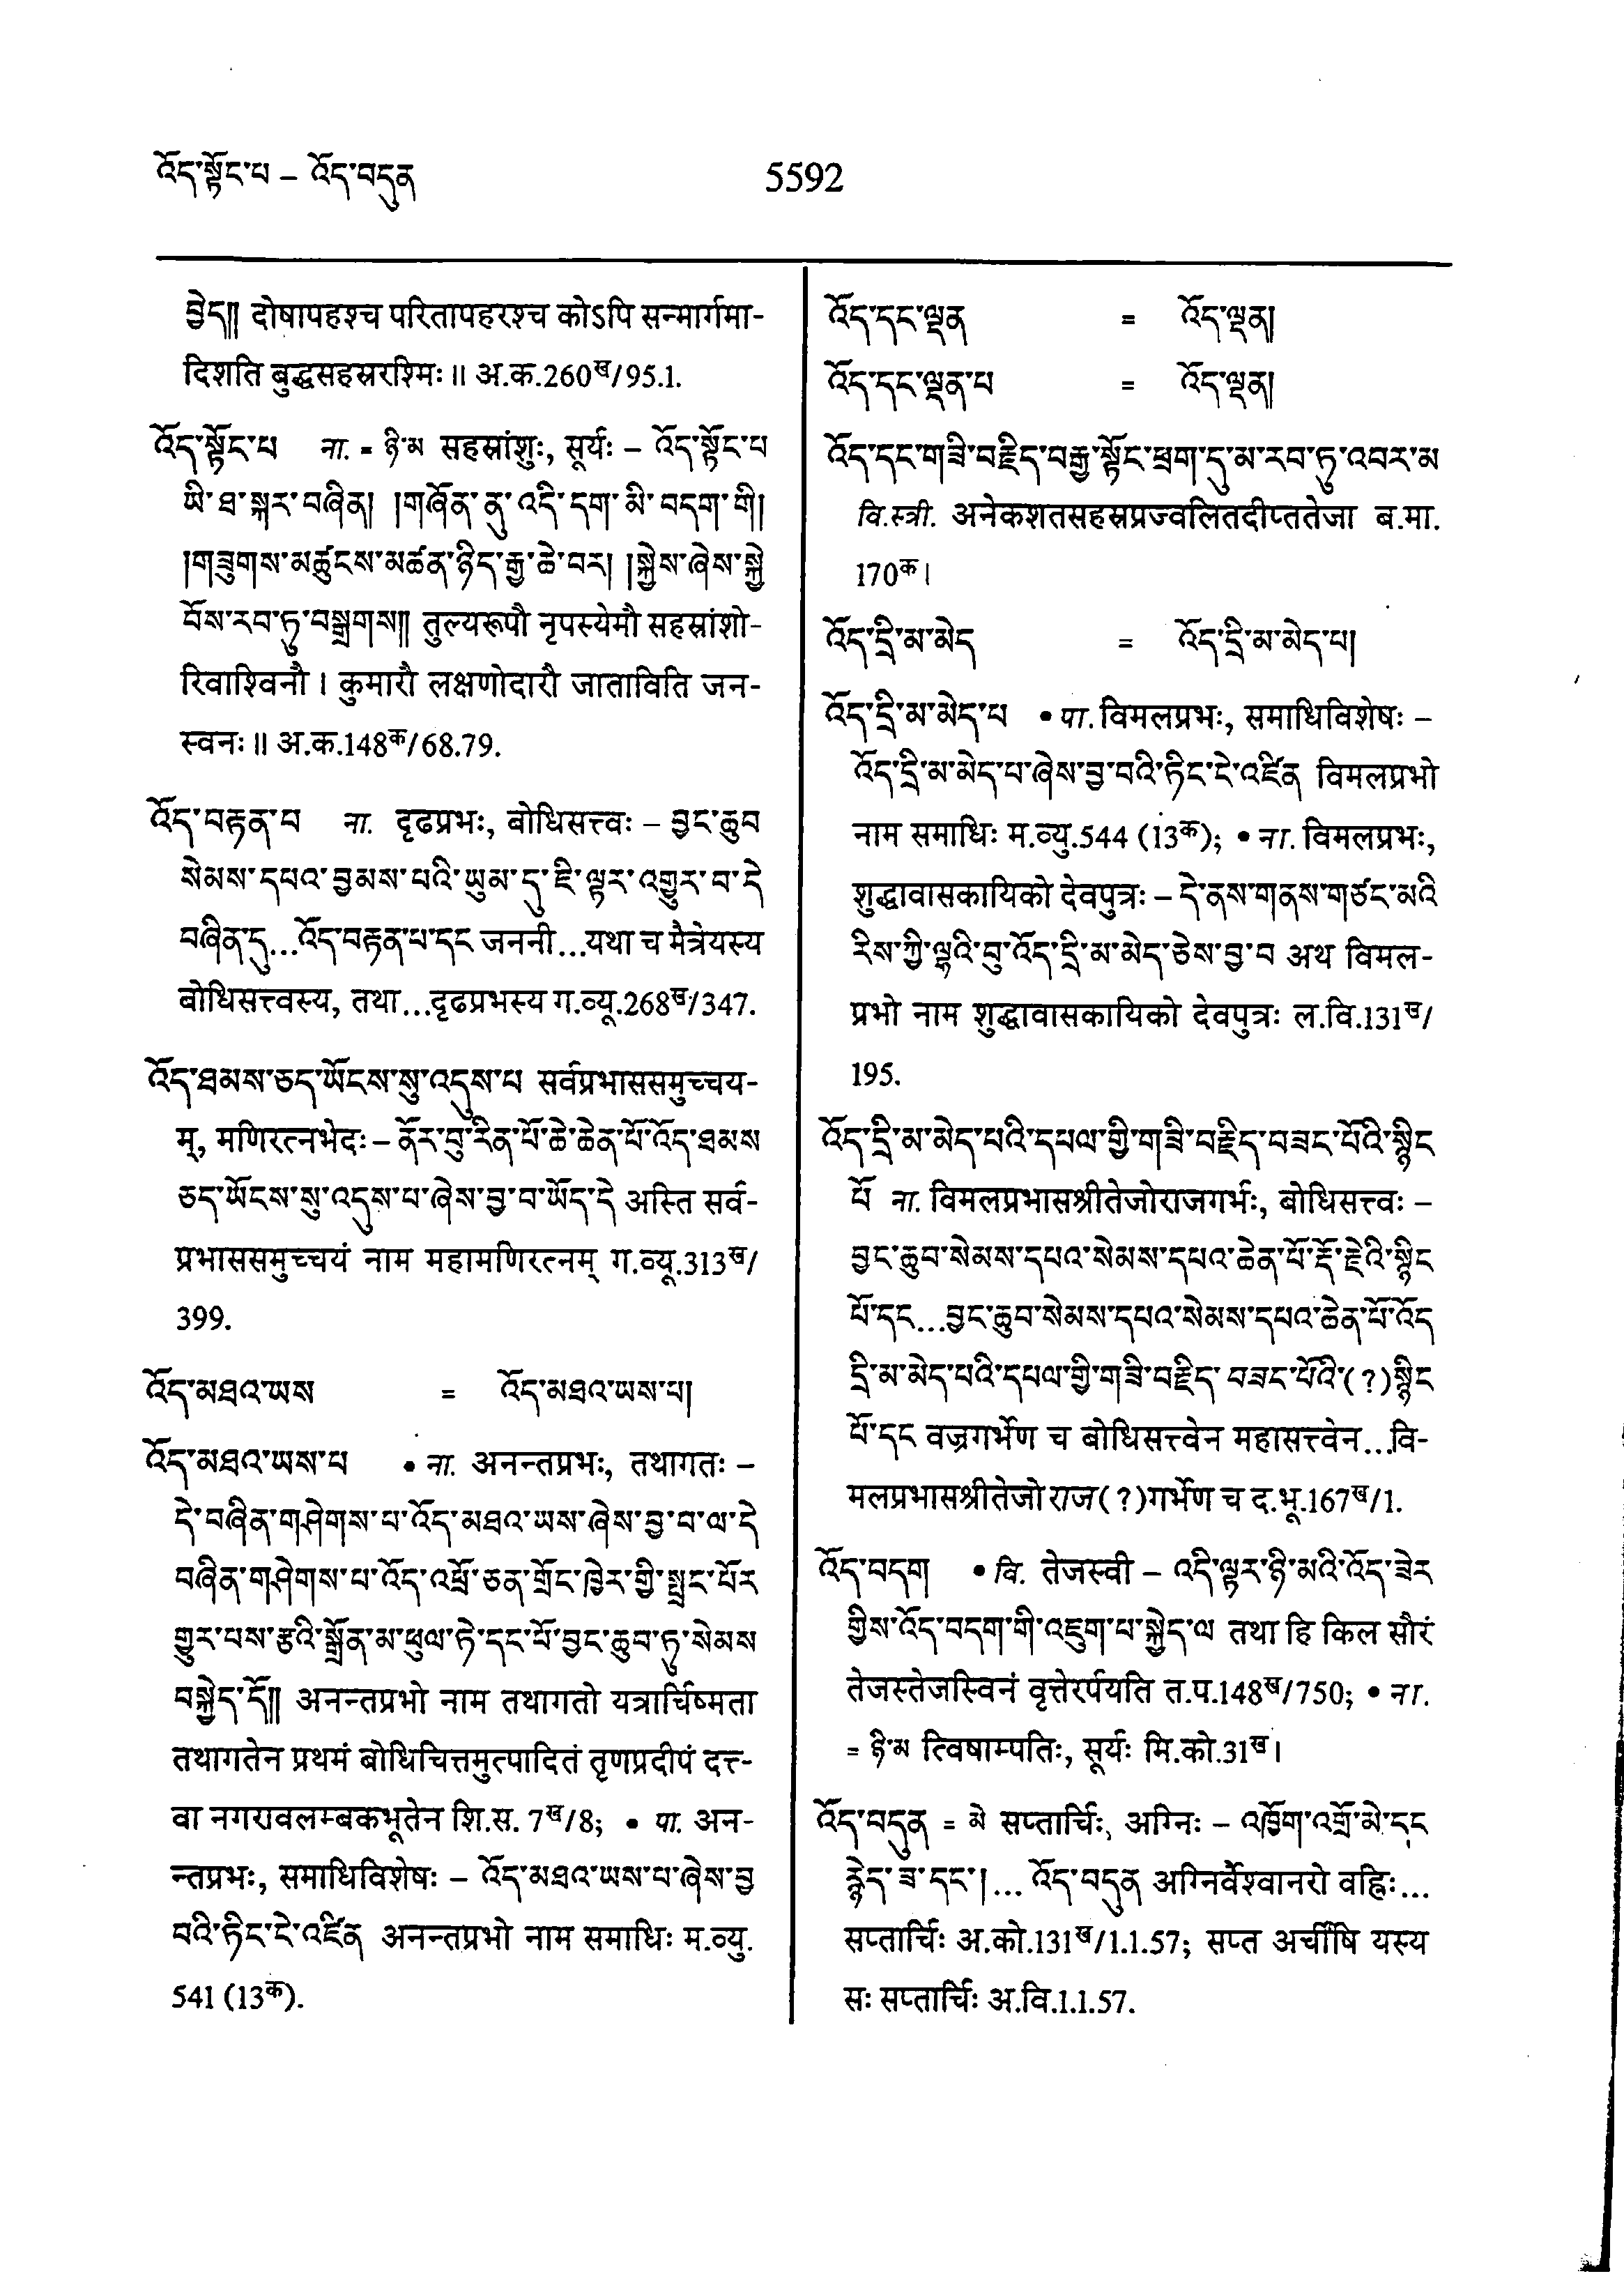 འོད་སྟོང་པ – འོད་བདུན
5592
བྱེད།། दोषापहश्च परितापहरश्च कोऽपि सन्मार्गमा-
दिशति बुद्धसहस्ररश्मिः ॥ अ.क.260ख/95.1.
འོད་སྟོང་པ ना. = ཉི་མ सहस्रांशुः, सूर्यः – འོད་སྟོང་པ
ཡི་ཐ་སྐར་བཞིན། །གཞོན་ནུ་འདི་དག་མི་བདག་གི།
།གཟུགས་མཚུངས་མཚན་ཉིད་རྒྱ་ཆེ་བར། །སྐྱེས་ཞེས་སྐྱེ
བོས་རབ་ཏུ་བསྒྲགས།། तुल्यरूपौ नृपस्येमौ सहस्रांशो-
रिवाश्विनौ । कुमारौ लक्षणोदारौ जाताविति जन-
स्वनः ॥ अ.क.148क/68.79.
འོད་བརྟན་པ ना. दृढप्रभः, बोधिसत्त्वः – བྱང་ཆུབ
སེམས་དཔའ་བྱམས་པའི་ཡུམ་དུ་ཇི་ལྟར་འགྱུར་བ་དེ
བཞིན་དུ...འོད་བརྟན་པ་དང जननी...यथा च मैत्रेयस्य
बोधिसत्त्वस्य, तथा...दृढप्रभस्य ग.व्यू.268ख/347.
འོད་ཐམས་ཅད་ཡོངས་སུ་འདུས་པ सर्वप्रभाससमुच्चय-
म्, मणिरत्नभेदः – ནོར་བུ་རིན་པོ་ཆེ་ཆེན་པོ་འོད་ཐམས
ཅད་ཡོངས་སུ་འདུས་པ་ཞེས་བྱ་བ་ཡོད་དེ अस्ति सर्व-
प्रभाससमुच्चयं नाम महामणिरत्नम् ग.व्यू.313ख/
399.
འོད་མཐའ་ཡས = འོད་མཐའ་ཡས་པ།
འོད་མཐའ་ཡས་པ • ना. अनन्तप्रभः, तथागतः –
དེ་བཞིན་གཤེགས་པ་འོད་མཐའ་ཡས་ཞེས་བྱ་བ་ལ་དེ
བཞིན་གཤེགས་པ་འོད་འཕྲོ་ཅན་གྲོང་ཁྱེར་གྱི་སྤྲང་པོར
གྱུར་པས་རྩའི་སྒྲོན་མ་ཕུལ་ཏེ་དང་པོ་བྱང་ཆུབ་ཏུ་སེམས
བསྐྱེད་དོ།། अनन्तप्रभो नाम तथागतो यत्रार्चिष्मता
तथागतेन प्रथमं बोधिचित्तमुत्पादितं तृणप्रदीपं दत्त-
वा नगरावलम्बकभूतेन शि.स. 7ख/8; • पा. अन-
न्तप्रभः, समाधिविशेषः – འོད་མཐའ་ཡས་པ་ཞེས་བྱ
བའི་ཏིང་ངེ་འཛིན अनन्तप्रभो नाम समाधिः म.व्यु.
541 (13क).
འོད་དང་ལྡན = འོད་ལྡན།
འོད་དང་ལྡན་པ = འོད་ལྡན།
འོད་དང་གཟི་བརྗིད་བརྒྱ་སྟོང་ཕྲག་དུ་མ་རབ་ཏུ་འབར་མ
वि.स्त्री. अनेकशतसहस्रप्रज्वलितदीप्ततेजा ब.मा.
170क।
འོད་དྲི་མ་མེད = འོད་དྲི་མ་མེད་པ།
འོད་དྲི་མ་མེད་པ • पा. विमलप्रभः, समाधिविशेषः –
འོད་དྲི་མ་མེད་པ་ཞེས་བྱ་བའི་ཏིང་ངེ་འཛིན विमलप्रभो
नाम समाधिः म.व्यु.544 (13क); • ना. विमलप्रभः,
शुद्धावासकायिको देवपुत्रः – དེ་ནས་གནས་གཙང་མའི
རིས་ཀྱི་ལྷའི་བུ་འོད་དྲི་མ་མེད་ཅེས་བྱ་བ अथ विमल-
प्रभो नाम शुद्धावासकायिको देवपुत्रः ल.वि.131ख/
195.
འོད་དྲི་མ་མེད་པའི་དཔལ་གྱི་གཟི་བརྗིད་བཟང་པོའི་སྙིང
པོ ना. विमलप्रभासश्रीतेजोराजगर्भः, बोधिसत्त्वः –
བྱང་ཆུབ་སེམས་དཔའ་སེམས་དཔའ་ཆེན་པོ་རྡོ་རྗེའི་སྙིང
པོ་དང...བྱང་ཆུབ་སེམས་དཔའ་སེམས་དཔའ་ཆེན་པོ་འོད
དྲི་མ་མེད་པའི་དཔལ་གྱི་གཟི་བརྗིད་བཟང་པོའི་(?)སྙིང
པོ་དང वज्रगर्भेण च बोधिसत्त्वेन महासत्त्वेन...वि-
मलप्रभासश्रीतेजोराज(?)गर्भेण च द.भू.167ख/1.
འོད་བདག • वि. तेजस्वी – འདི་ལྟར་ཉི་མའི་འོད་ཟེར
གྱིས་འོད་བདག་གི་འཇུག་པ་སྐྱེད་ལ तथा हि किल सौरं
तेजस्तेजस्विनं वृत्तेरर्पयति त.प.148ख/750; • ना.
= ཉི་མ त्विषाम्पतिः, सूर्यः मि.को.31ख।
འོད་བདུན = མེ सप्तार्चिः, अग्निः – འཁྱོག་འགྲོ་མེ་དང
རྙེད་ཟ་དང་།... འོད་བདུན अग्निर्वैश्वानरो वह्निः...
सप्तार्चिः अ.को.131ख/1.1.57; सप्त अर्चींषि यस्य
सः सप्तार्चिः अ.वि.1.1.57.